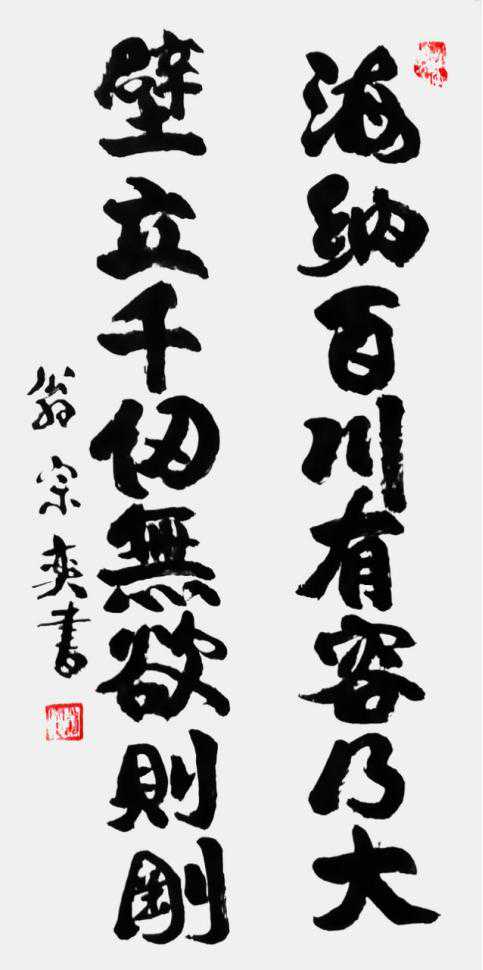 海納百川有容乃大
壁立千仞無欲則剛
翁宗奕書